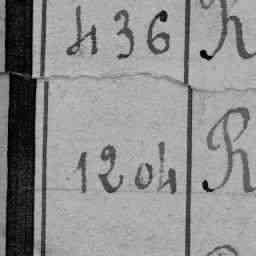 436 R
1204 R